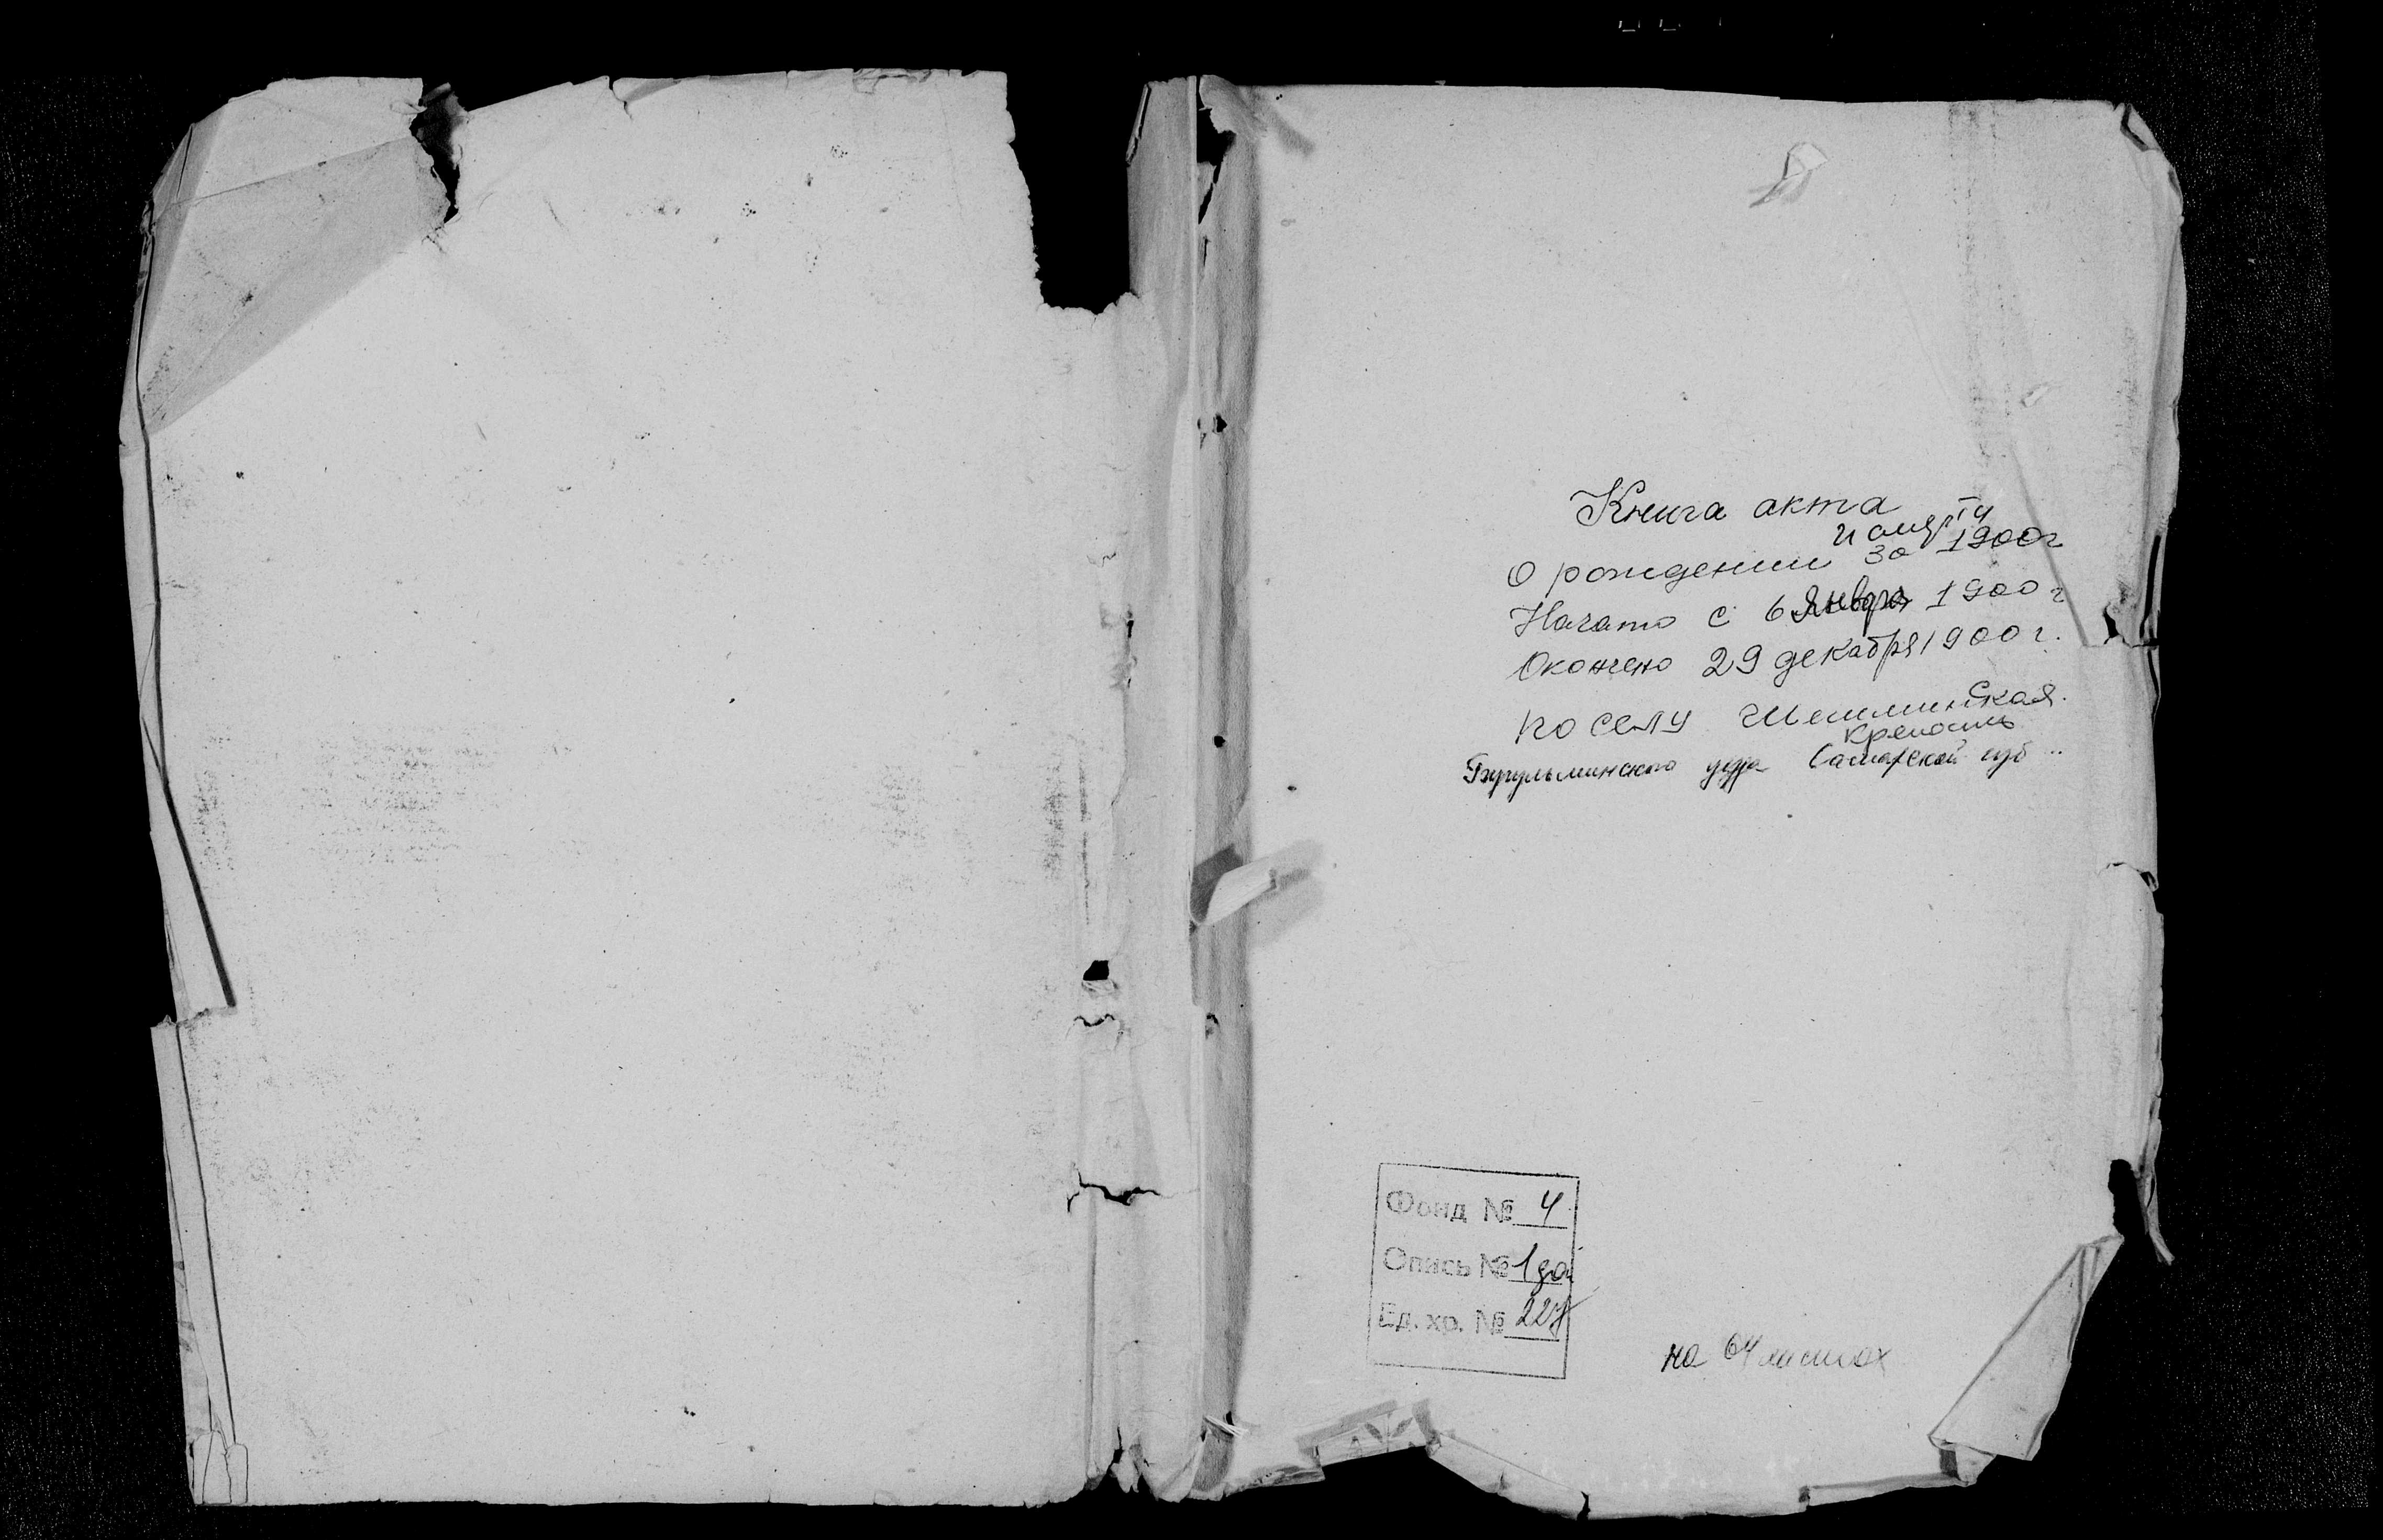 Книга акта
и смерти
О рождении за 1900г
Начато с 6 Января 1900 г
Окончено 29 декабря 1900 г.
по селу Шешминская
крепость
Бугульминского уезда Самарской губ..
Фонд № 4
Опись № 1 доп
Ед. хр. №
на 64 листах